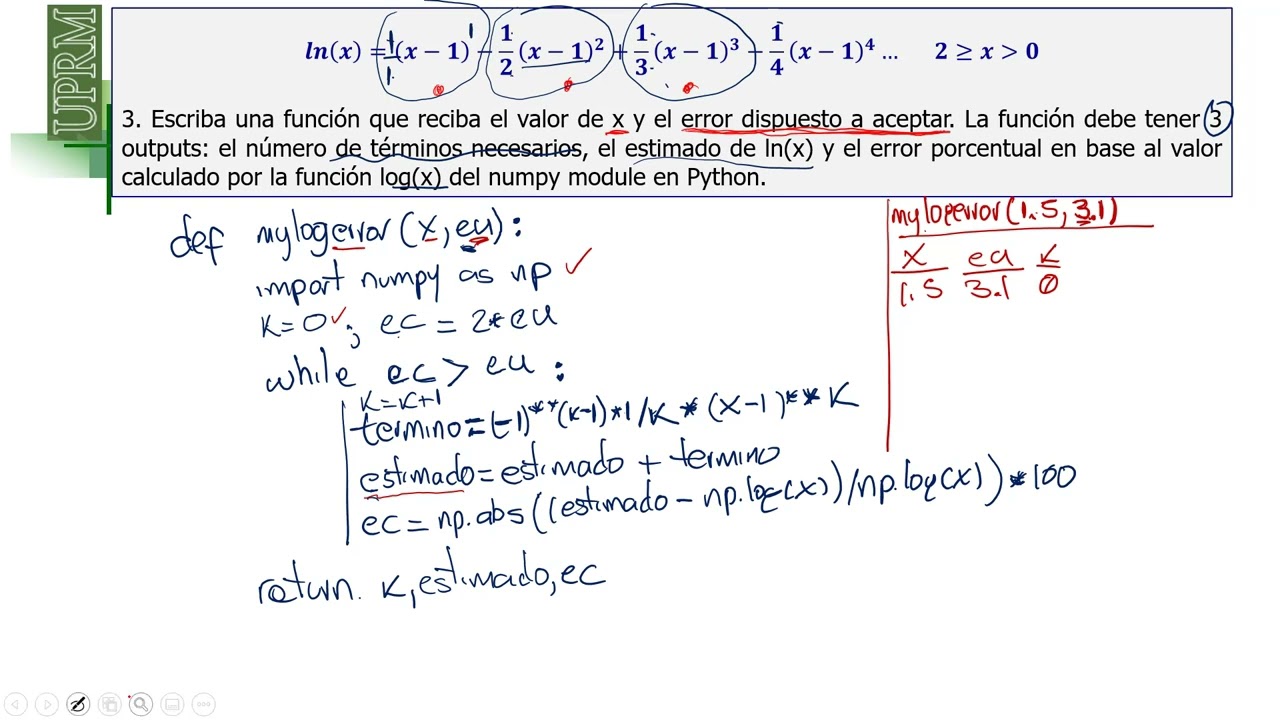 UPRM
ln(x) = 1/1 (x − 1)^1 − 1/2 (x − 1)^2 + 1/3 (x − 1)^3 − 1/4 (x − 1)^4 ... 2 ≥ x > 0
3. Escriba una función que reciba el valor de x y el error dispuesto a aceptar. La función debe tener 3
outputs: el número de términos necesarios, el estimado de ln(x) y el error porcentual en base al valor
calculado por la función log(x) del numpy module en Python.
def mylogerror(x, eu):
import numpy as np ✓
K=0 ✓; ec = 2*eu
while ec > eu :
K=K+1
termino=(-1)**(K-1)*1/K*(x-1)**K
estimado=estimado + termino
ec=np.abs((estimado-np.log(x))/np.log(x))*100
return K,estimado,ec
mylogerror(1.5, 3.1)
x eu K
1.5 3.1 0